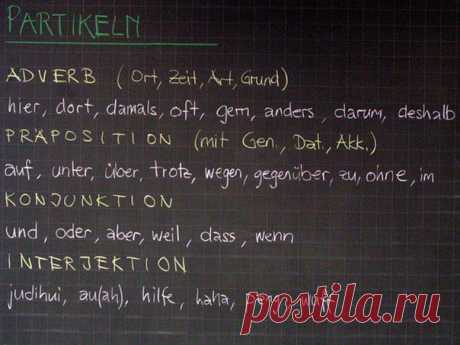 PARTIKELN
ADVERB (Ort, Zeit, Art, Grund)
hier, dort, damals, oft, gern, anders, darum, deshalb
PRÄPOSITION (mit Gen., Dat., Akk.)
auf, unter, über, trotz, wegen, gegenüber, zu, ohne, im
KONJUNKTION
und, oder, aber, weil, dass, wenn
INTERJEKTION
judihui, au(ah), hilfe, haha,
postila.ru